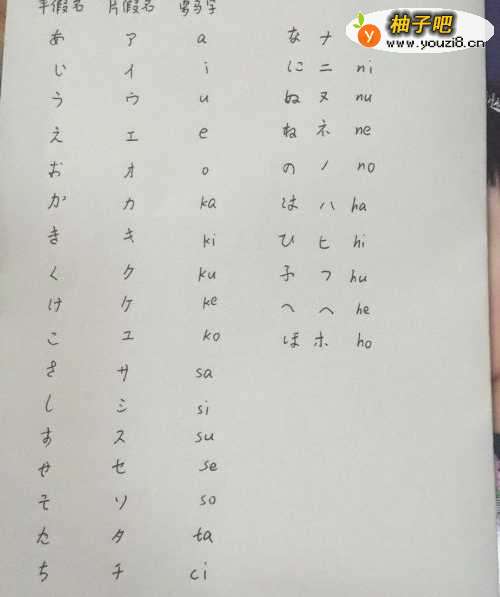 平假名 片假名 罗马字
あ ア a
い イ i
う ウ u
え エ e
お オ o
か カ ka
き キ ki
く ク ku
け ケ ke
こ コ ko
さ サ sa
し シ si
す ス su
せ セ se
そ ソ so
た タ ta
ち チ ci
な ナ
に ニ ni
ぬ ヌ nu
ね ネ ne
の ノ no
は ハ ha
ひ ヒ hi
ふ フ hu
へ ヘ he
ほ ホ ho
柚子吧
www.youzi8.cn